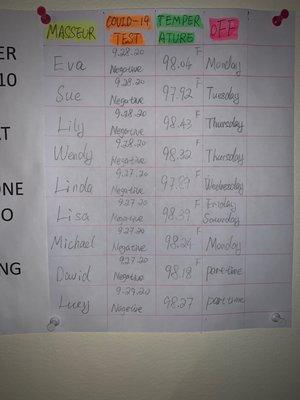 MASSEUR COVID-19 TEST TEMPERATURE OFF
Eva 9.28.20 Negative 98.04 F Monday
Sue 9.28.20 Negative 97.92 F Tuesday
Lily 9.28.20 Negative 98.43 F Thursday
Wendy 9.28.20 Negative 98.32 F Thursday
Linda 9.27.20 Negative 97.89 F Wednesday
Lisa 9.27.20 Negative 98.39 F Friday Saturday
Michael 9.27.20 Negative 98.24 F Monday
David 9.27.20 Negative 98.18 F part-time
Lucy 9.29.20 Negative 98.27 F part-time
ER
10
AT
ONE
O
NG